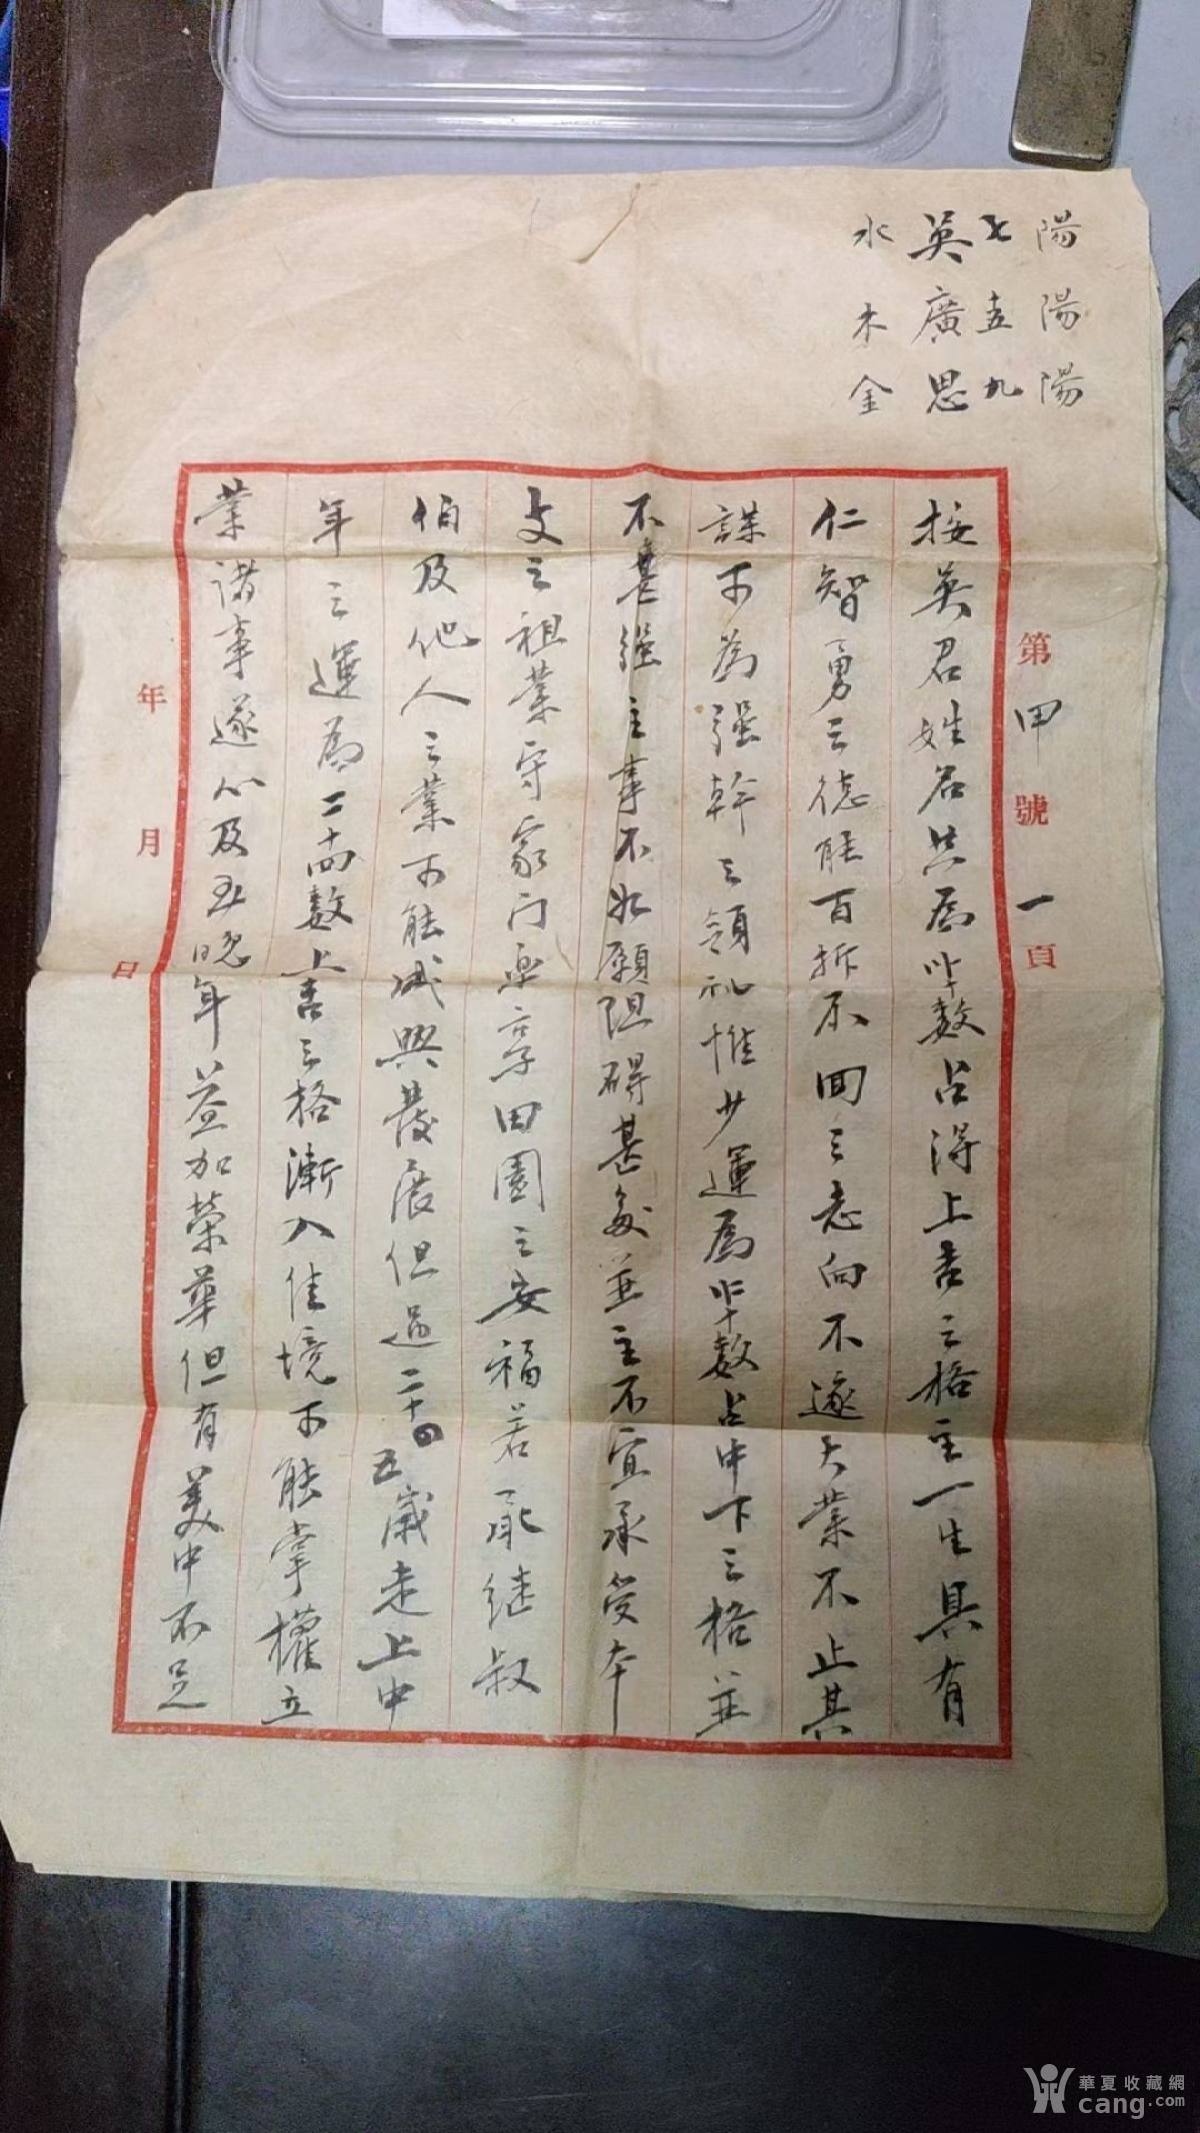 陽陽陽
七五九
英廣思
水木金
第甲號一頁
按英君姓名共為廿一數占得上吉之格主一生具有
仁智勇之德能百折不回之志向不遂大業不止其
謀可為強幹之領袖惟少運為十二數占中下之格並
不甚強主事不如願阻碍甚多並主不宜承受本
支之祖業守家門坐享田園之安福若承继叔
伯及他人之業可能成興發展但過二十四五歲走上中
年之運為二十四數上吉之格漸入佳境可能掌權立
業諸事遂心及至晚年益加榮華但有美中不足
年月日
華夏收藏網
cang.com